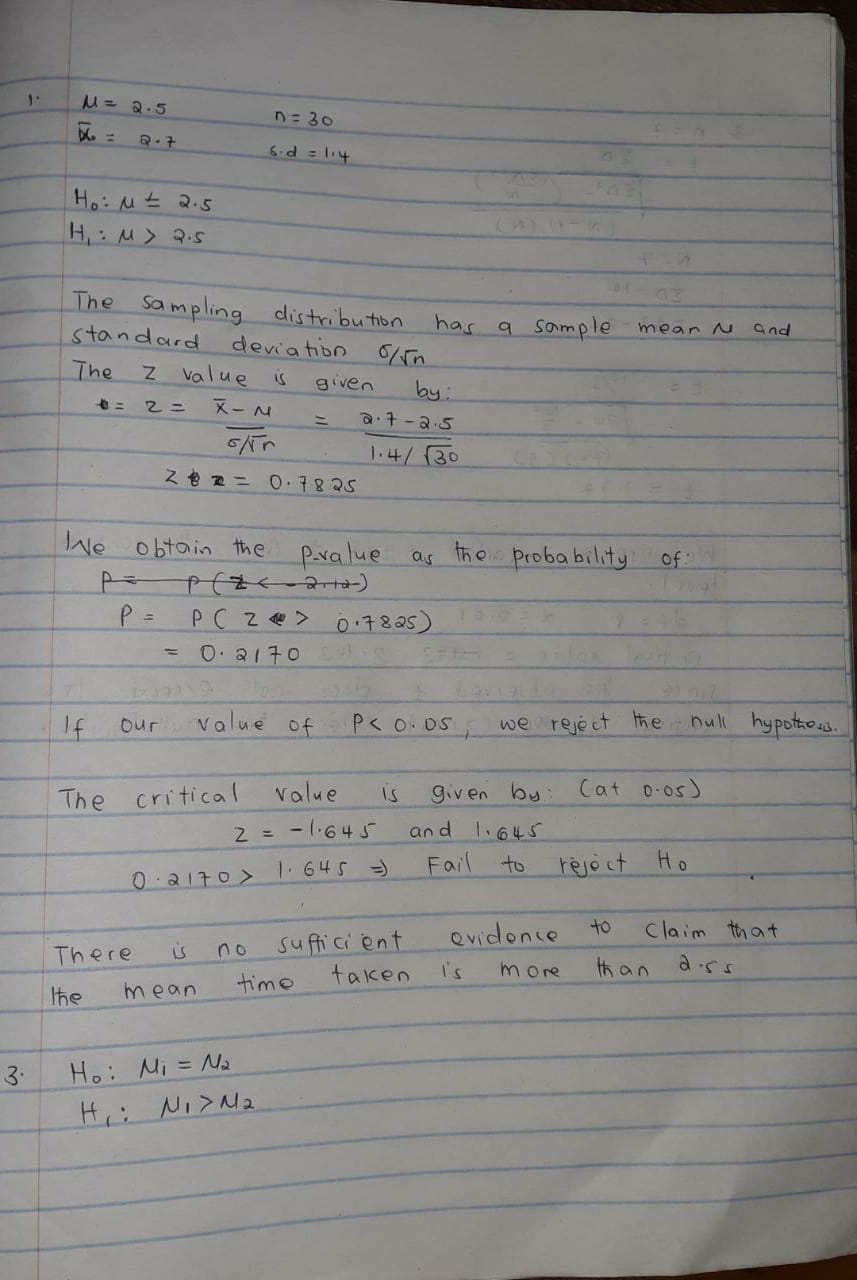 1. μ = 2.5 n = 30
x̄ = 2.7 s.d = 1.4
H₀: μ ≤ 2.5
H₁: μ > 2.5
The sampling distribution has a sample mean μ and
standard deviation σ/√n
The z value is given by:
z = x̄ - μ = 2.7 - 2.5
σ/√n 1.4/√30
z = 0.7825
We obtain the p-value as the probability of:
P = P(Z < -2.12)
P = P(Z > 0.7825)
= 0.2170
If our value of P < 0.05, we reject the null hypothesis.
The critical value is given by: (at 0.05)
z = -1.645 and 1.645
0.2170 > 1.645 ⇒ Fail to reject H₀
There is no sufficient evidence to claim that
the mean time taken is more than 2.5s
3. H₀: μ₁ = μ₂
H₁: μ₁ > μ₂